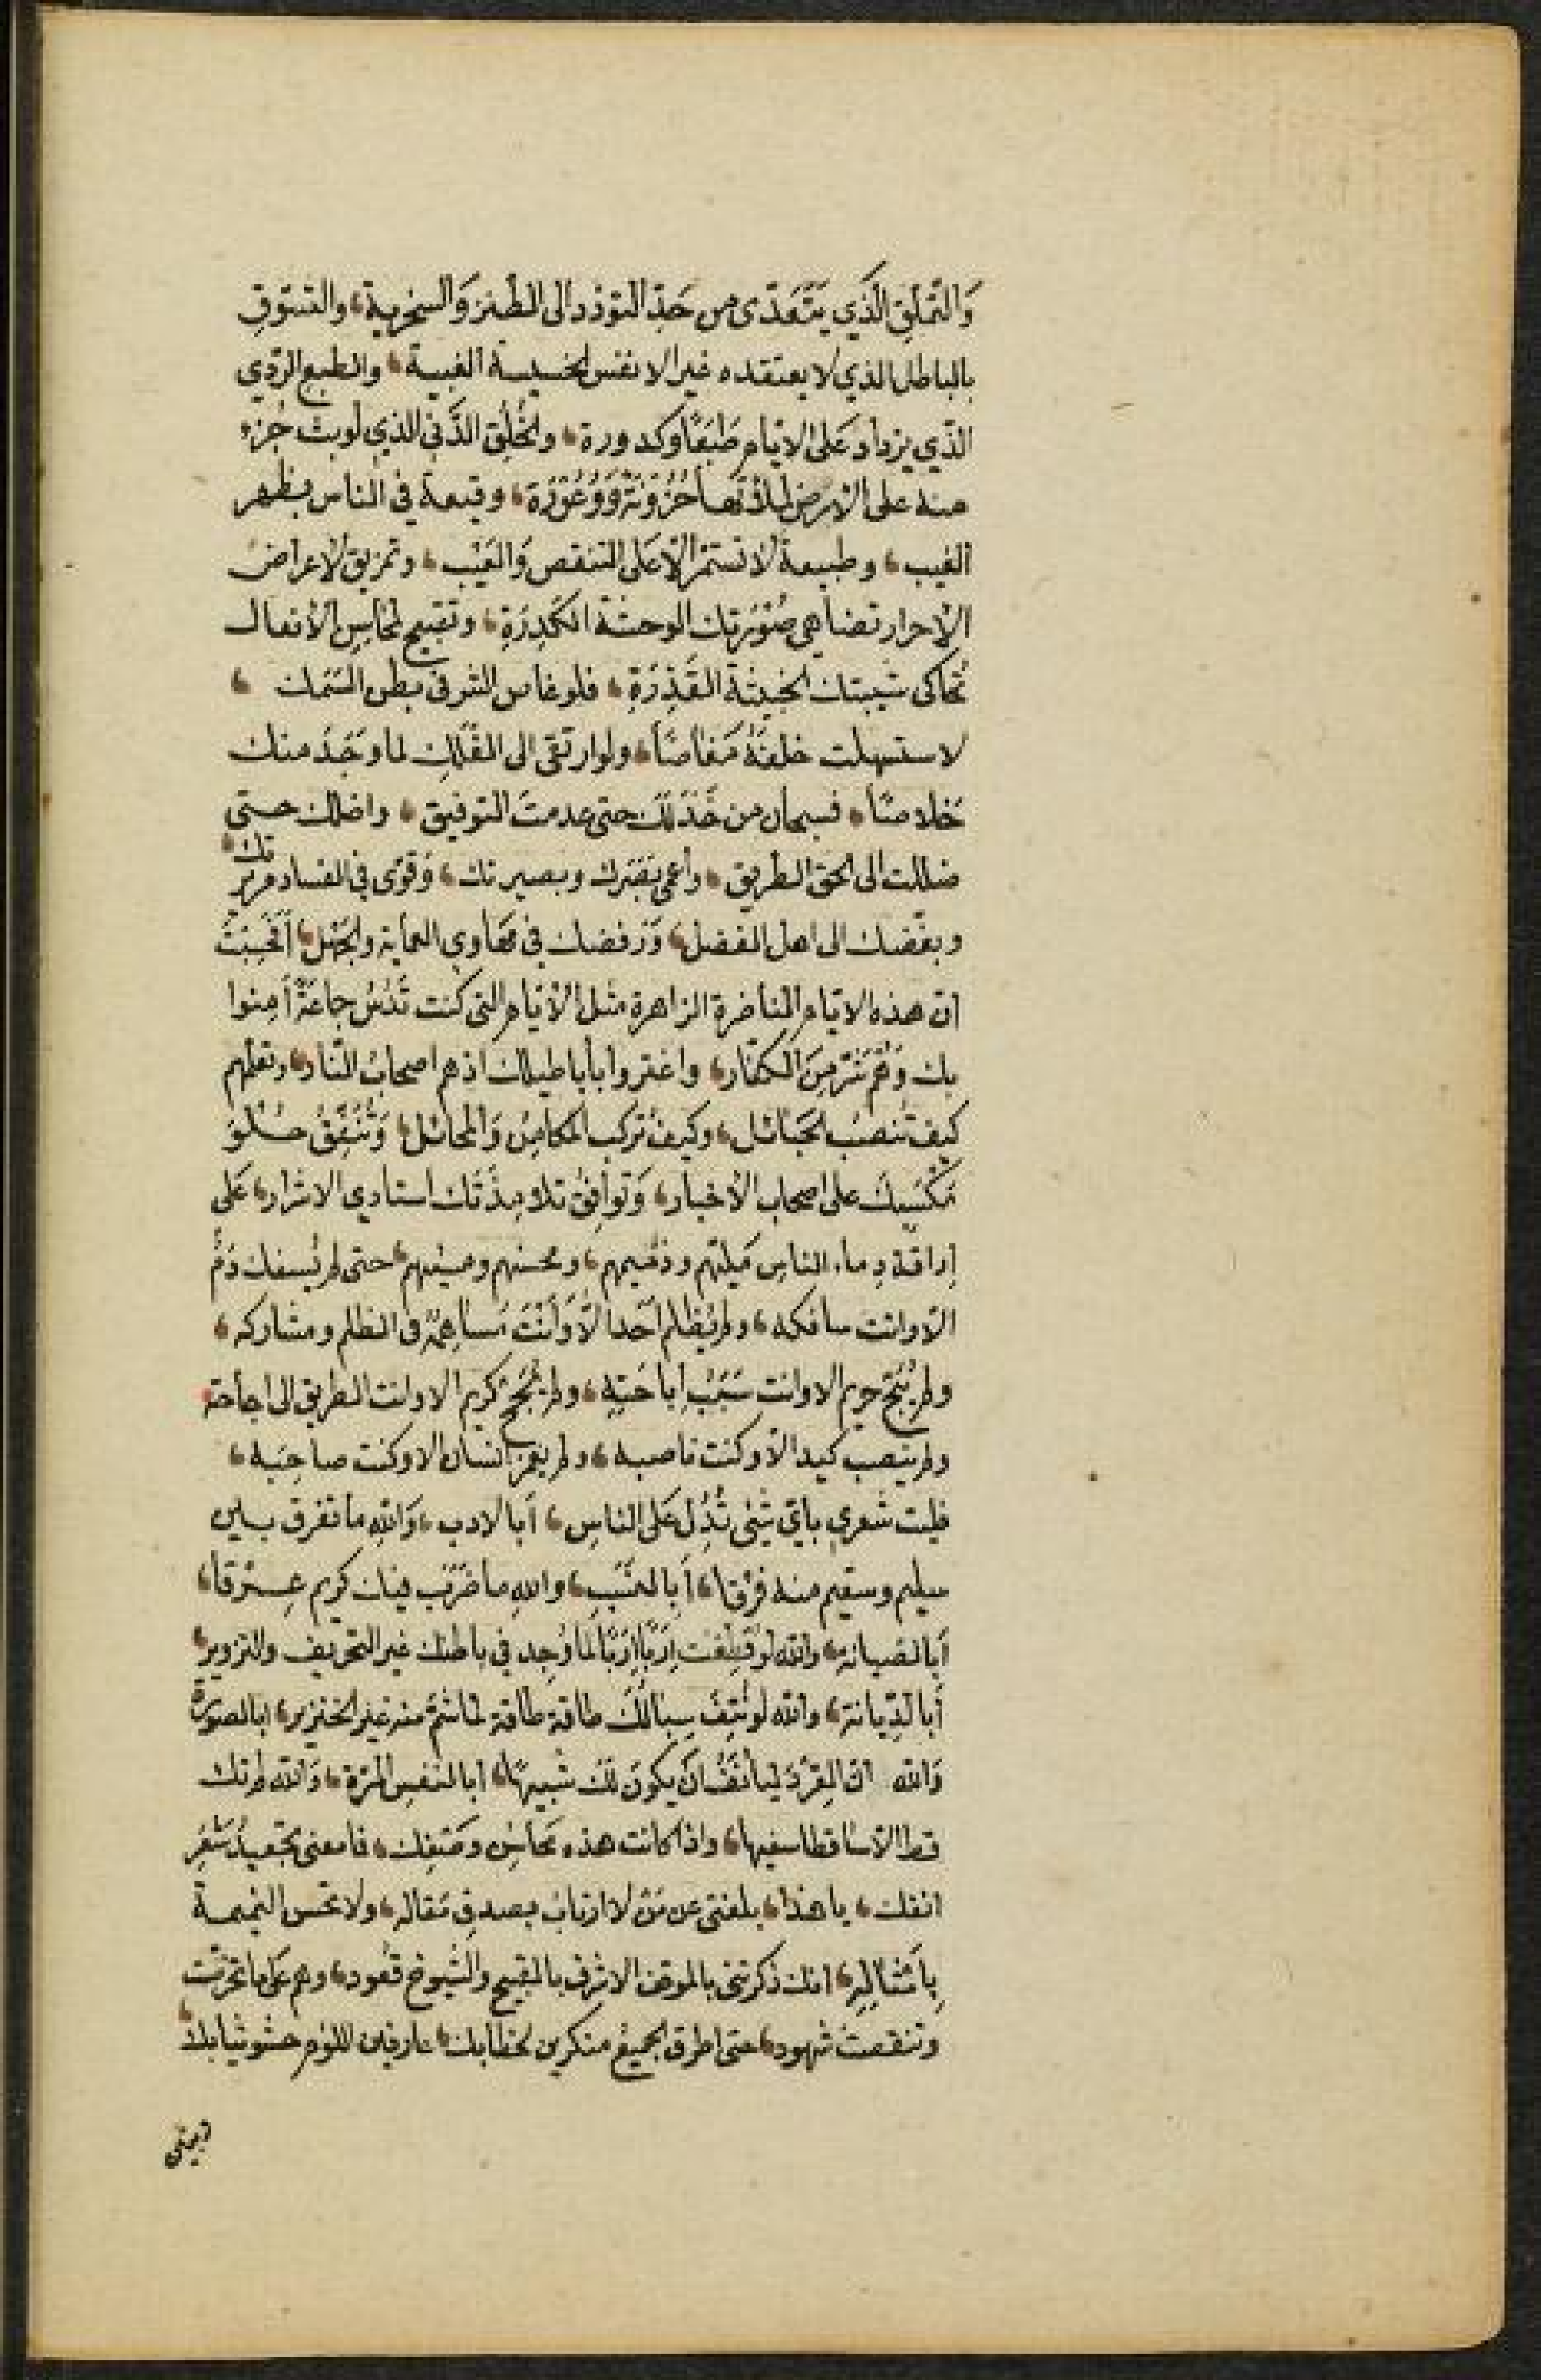 وَالتَّمَلُّقِ الَّذِي يَتَعَدّى من حَدِّ التودد الى الطنز وَالسخرية، والتسوق
بالباطل الذي لا يعتقده غير الانفس الخسيسة الغبية، والطبع الردي
الذي يزداد عَلى الايام طَبَعًا وكدورة، والخُلُق الدَّني الذي لو بث جُزء
منه على الأرض لملأتها حُزُونَةً وَوُعُوْرَة، وقيعة في الناس بظهر
الغيب، وطبيعة لا تستمر الّا عَلى التنقص وَالعَيْب، وتمزيق لاعراض
الأحرار تضاهي صُوْرَتِك الوحشة الكَدِرَةِ، وتقبيح لمحاسِن الأفعال
تُحاكى شيبتك الخبيثة القَذِرَةِ، فلو غاص الشر في بطن السَّمَك،
لاستسهلت خلفَهُ مَغاصًا، ولو ارتقى الى الفَلَك لما وَجَدَ منك
خَلاصًا، فسبحان من خَذَلَكَ حتى عدمتَ التوفيق، واضلك حتى
ضللت الى الحق الطريق، وأعمى بَصَرك وبصيرتك، وَقوّى في الفساد مريرتك،
وبغّضك الى اهل الفضل، وَرفضك في مَهاوي العماية والجَهْل، أَفَحَسِبْتَ
انّ هذه الايام الناضرة الزاهرة مثل الأيام التى كنت تَدُسُّ جماعَةً أمِنوا
بك وَهُم شَرّ مِنَ الكفّار، واغتروا بأباطيلك اذ هم اصحابُ النّار، وتعلمهم
كيف تُنصَبُ الحَبائل، وكيف تركب المكامِن وَالمخائل، وَتُنْفِقُ
على اصحاب الأخبار، وَتوافِق تلامِذَتَك استاذي الاشرار، عَلى
إراقة دِماء الناس مَليّهم وذمّيهم، ومحسنهم ومسيئهم، حتى لم يُسفك دَمٌ
الّا وانت سافكه، ولم يُظلم أحد الَّا وَأَنْتَ مُساهمهُ في الظلم ومشاركه،
ولم يُبَحْ حريم الا وانت سَبَبُ إباحَتِهِ، ولم يُجَحْ كريم الا وانت الطريق الى اجاحته
ولم ينصب كيد الّا وكنت ناصبه، ولم يغمز انسان الا وكنت صاحِبَه،
فليت شعري بايّ شئ تُدِلّ عَلى الناس، أبالادب، وَاللهِ ما تفرق بين
سليم وسقيم منه فرقا، أبالنَّسَبِ، واللهِ ما ضَرَبَ فيك كريم عِرْقا،
أبالصيانة، والله لو قُطِعْت إرَبًا إرَبًا لما وُجِد في باطنك غير التحريف والتزوير،
أبالدِّيانة، والله لو نُتِفَ سِبالُكَ طاقة طاقة لما شُمّ منه غير الخنزير، ابالصورة
وَالله انّ القِرْدَ ليأنَفُ أن يكونَ لك شبيها، أبالنفسِ المرّة، وَالله لم تك
قط الّا ساقطا سفيها، واذا كانت هذه مَحاسِن وَصْفِك، فما معنى تجعيدُ شَعْرِ
انفك، يا هذا، بلغني عن مَنْ لا ارتابُ بصدقِ مَقاله، ولا تحسن النميمة
بِأمثالِهِ، انك ذكرتني بالموقف الاشرف بالقبيح والشيوخ قعود، وهم عَلى ما تخرّصت
وتنقصت شهود، حتى اطرق الجميعُ منكرين لخطابك، عارفين اللؤم حشو ثيابك